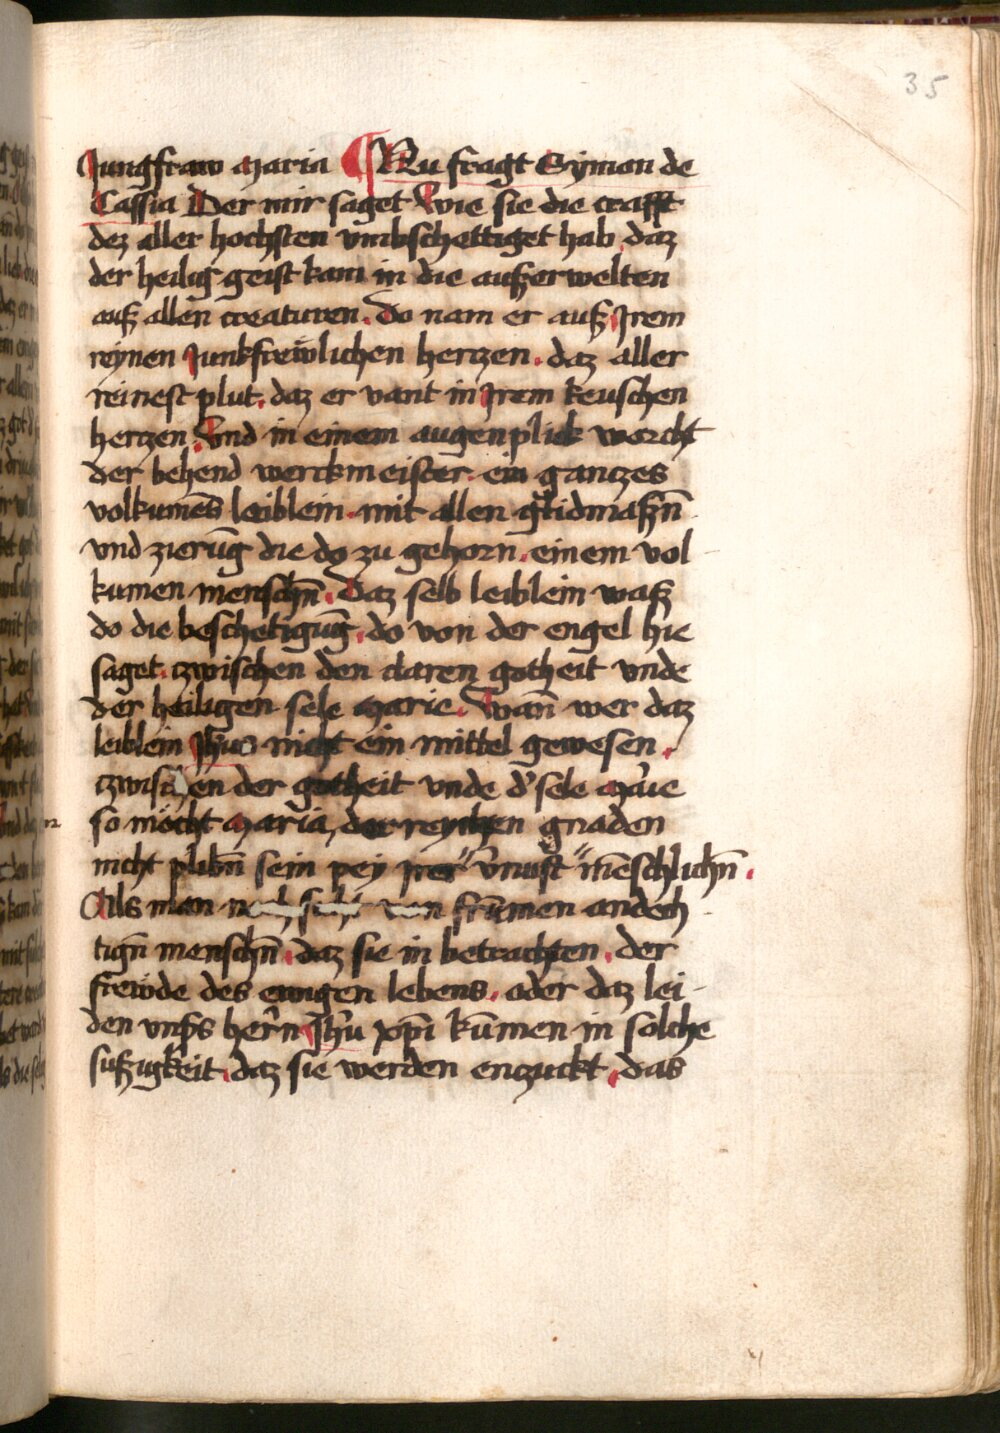 35
Jungfraw maria ¶ Nu fragt Symon de
Cassia Der mir saget Wie sie die crafft
dez aller hochsten vmbschettiget hab daz
der heilig geist kam in die außerwelten
auß allen creaturen. do nam er auß Jrem
reynen Junkfrewlichen hertzen. daz aller
reinest plut. daz er vant in Jrem keuschen
hertzen. Vnd in einem augenplick worcht
der behend werckmeister. ein ganczes
volkumēs leiblein. mit allen glidmaßn̄
vnd zierūg die do zu gehorn. einem vol
kumen menschn̄. Daz selb leiblein waß
do die beschetigūg. do von der engel hie
saget. czwischen den claren gotheit vnde
der heiligen sele marie. Wān wer daz
leiblein Jhus nicht ein mittel gewesen.
czwischen der gotheit vnde d' sele m'ie
so möcht maria, der reychen gnaden
nicht plibn̄ sein pey Jrer " v̄nuft " mēschlichn̄.
Als man von frūmen andech
tign̄ menschn̄. daz sie in betrachten. der
frewde des ewigen lebens. oder daz lei
den vnsˢ hern̄ Jhū xp̄i kūmen in solche
sußigkeit. daz sie werden enczuckt. das